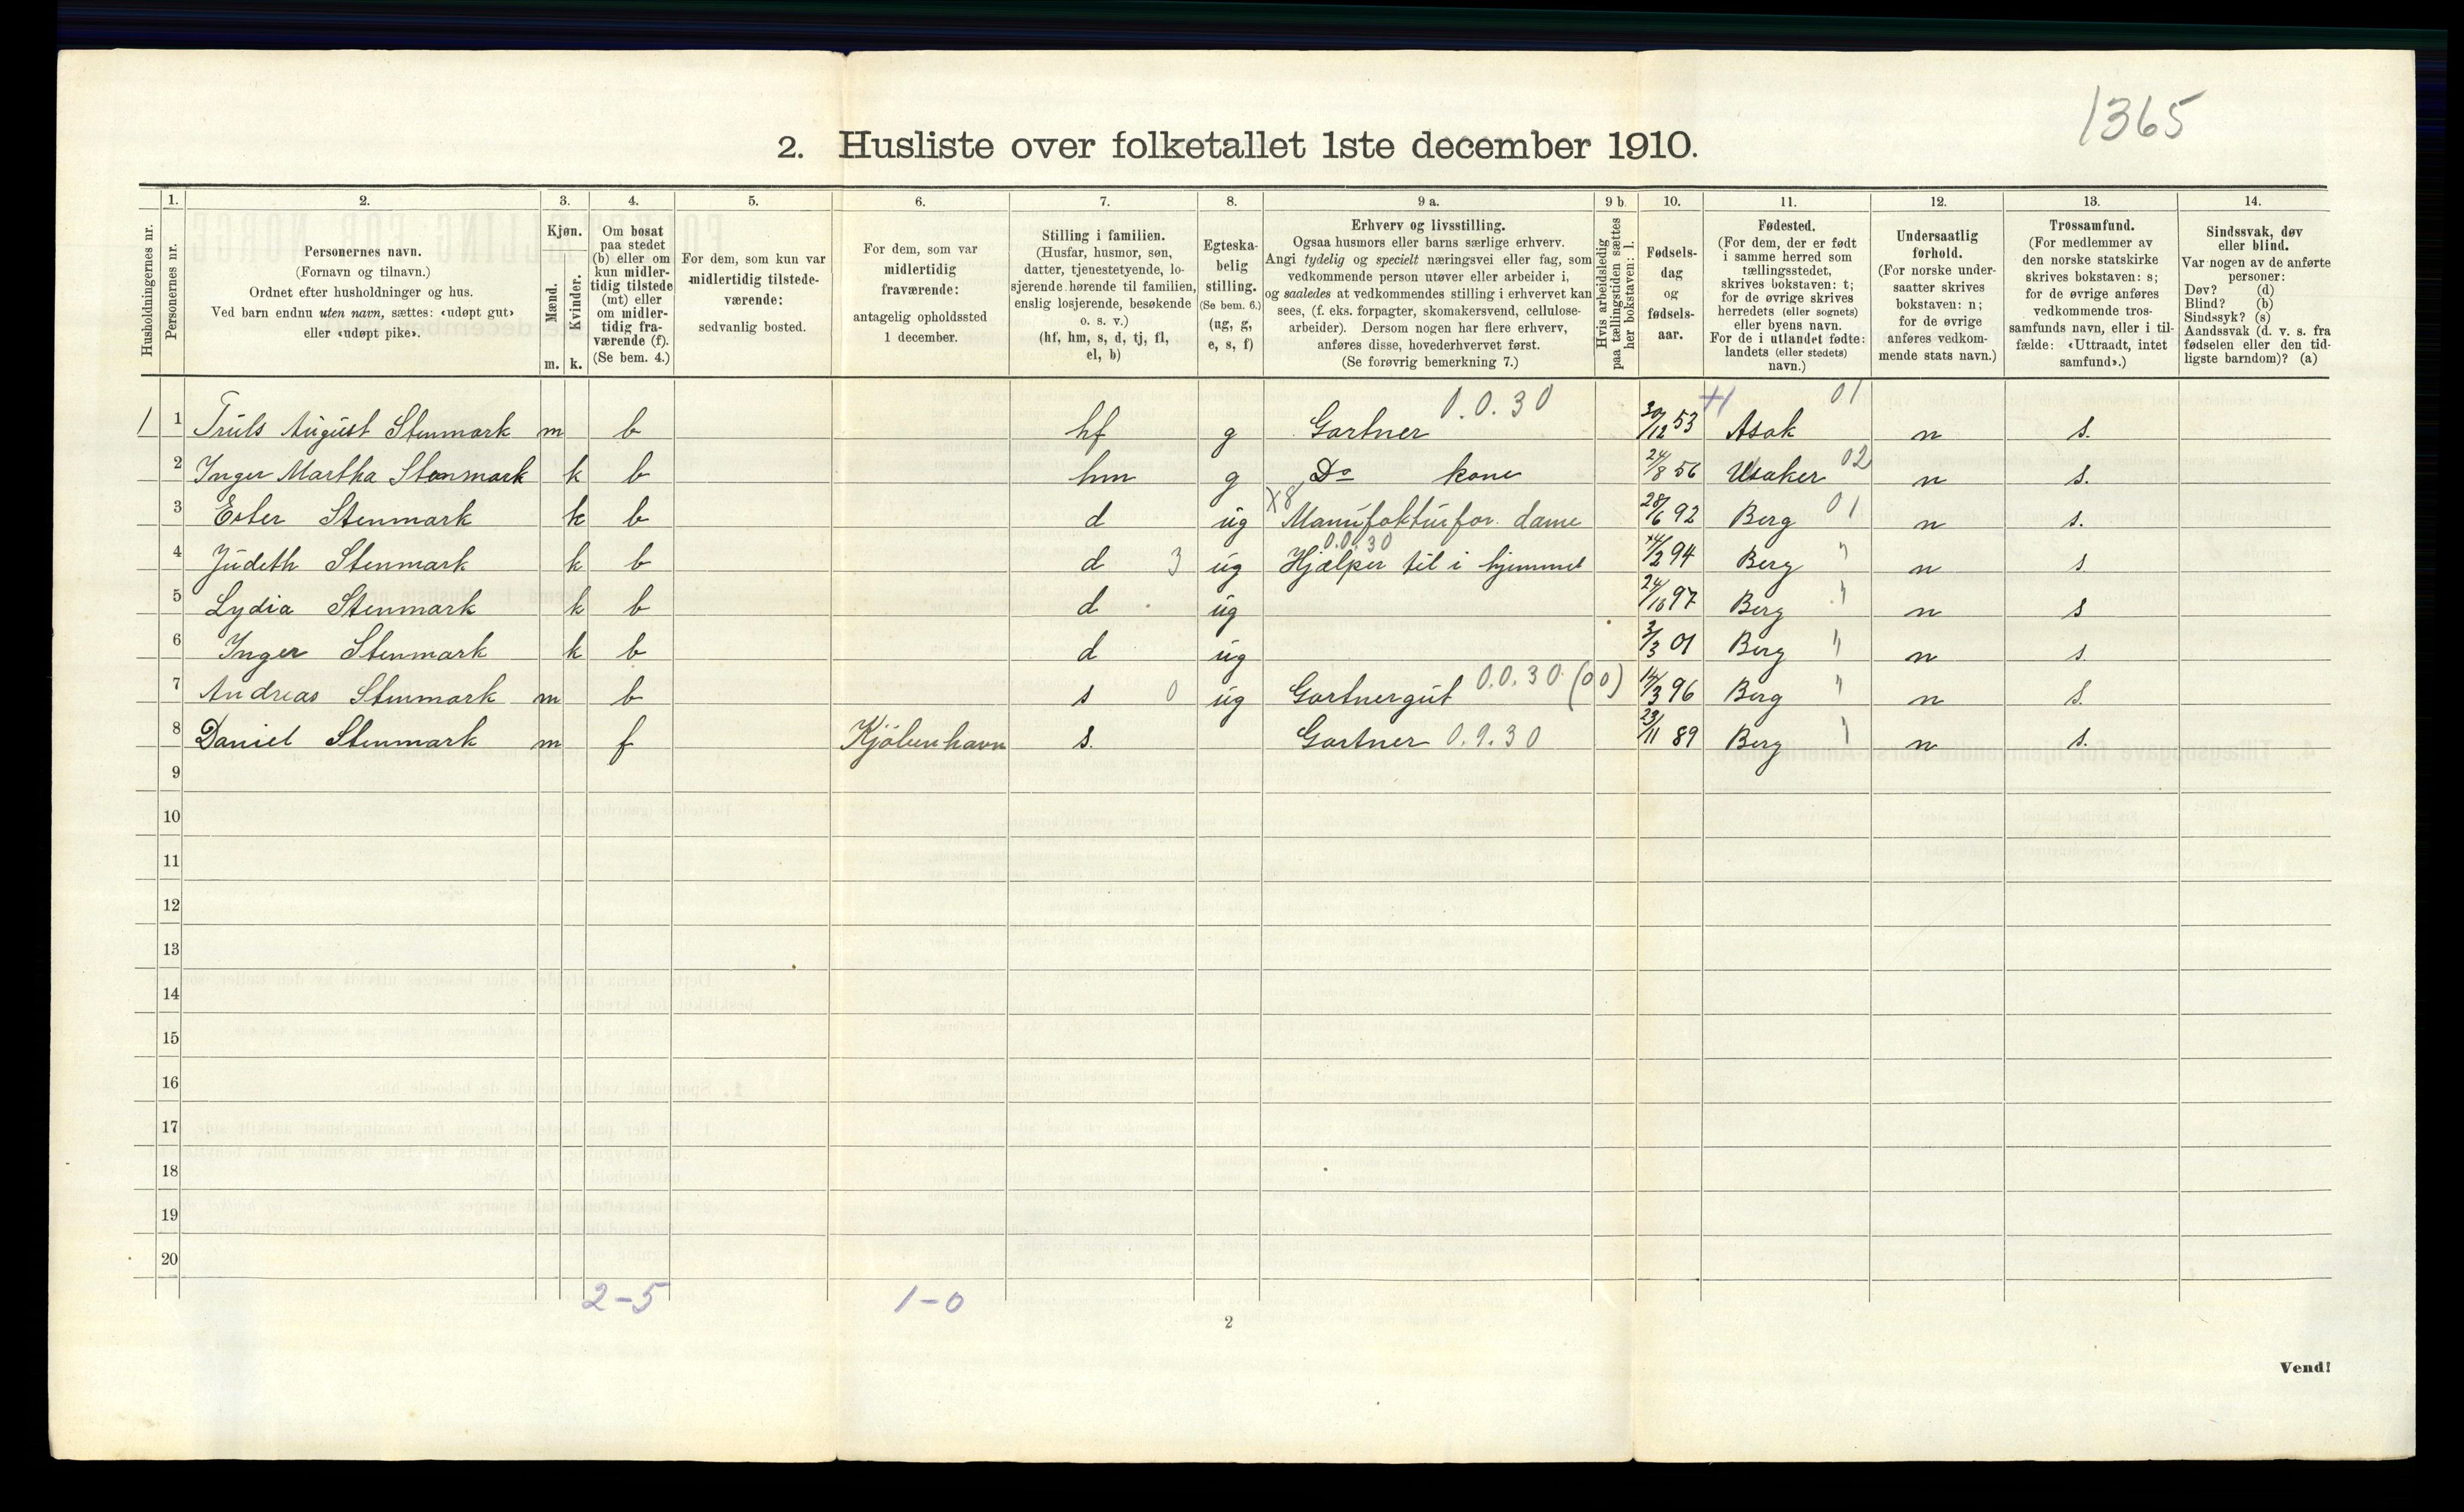 1365
2. Husliste over folketallet 1ste december 1910.
Husholdningernes nr.
1. Personernes nr.
2. Personernes navn.
(Fornavn og tilnavn.)
Ordnet efter husholdninger og hus.
Ved barn endnu uten navn, sættes: «udøpt gut»
eller «udøpt pike».
3. Kjøn.
Mænd. Kvinder.
m. k.
4. Om bosat
paa stedet
(b) eller om
kun midler-
tidig tilstede
(mt) eller
om midler-
tidig fra-
værende (f).
(Se bem. 4.)
5. For dem, som kun var
midlertidig tilstede-
værende:
sedvanlig bosted.
6. For dem, som var
midlertidig
fraværende:
antagelig opholdssted
1 december.
7. Stilling i familien.
(Husfar, husmor, søn,
datter, tjenestetyende, lo-
sjerende hørende til familien,
enslig losjerende, besøkende
o. s. v.)
(hf, hm, s, d, tj, fl,
el, b)
8. Egteska-
belig
stilling.
(Se bem. 6.)
(ug, g,
e, s, f)
9 a. Erhverv og livsstilling.
Ogsaa husmors eller barns særlige erhverv.
Angi tydelig og specielt næringsvei eller fag, som
vedkommende person utøver eller arbeider i,
og saaledes at vedkommendes stilling i erhvervet kan
sees, (f. eks. forpagter, skomakersvend, cellulose-
arbeider). Dersom nogen har flere erhverv,
anføres disse, hovederhvervet først.
(Se forøvrig bemerkning 7.)
9 b. Hvis arbeidsledig
paa tællingstiden sættes
her bokstaven: l.
10. Fødsels-
dag
og
fødsels-
aar.
11. Fødested.
(For dem, der er født
i samme herred som
tællingsstedet,
skrives bokstaven: t;
for de øvrige skrives
herredets (eller sognets)
eller byens navn.
For de i utlandet fødte:
landets (eller stedets)
navn.)
12. Undersaatlig
forhold.
(For norske under-
saatter skrives
bokstaven: n;
for de øvrige
anføres vedkom-
mende stats navn.)
13. Trossamfund.
(For medlemmer av
den norske statskirke
skrives bokstaven: s;
for de øvrige anføres
vedkommende tros-
samfunds navn, eller i til-
fælde: «Uttraadt, intet
samfund».)
14. Sindssvak, døv
eller blind.
Var nogen av de anførte
personer:
Døv? (d)
Blind? (b)
Sindssyk? (s)
Aandssvak (d. v. s. fra
fødselen eller den tid-
ligste barndom)? (a)
1 1 Truls August Stenmark m b hf g Gartner 0.0.30 30/12 53 Asak 01 n s.
2 Inger Martha Stenmark k b hm g Do kone 24/8 56 Usaker 02 n s.
3 Ester Stenmark k b d ug X8 Manufakturfor. dame 28/6 92 Berg 01 n s.
4 Judeth Stenmark k b d 3 ug 0.0.30 Hjælper til i hjemmet 14/2 94 Berg " n s.
5 Lydia Stenmark k b d ug 24/10 97 Berg " n s
6 Inger Stenmark k b d ug 3/3 01 Berg " n s.
7 Andreas Stenmark m b s 0 ug Gartnergut 0.0.30 (00) 14/3 96 Berg " n s.
8 Daniel Stenmark m f Kjöbenhavn s. Gartner 0.9.30 23/11 89 Berg " n s.
9
10
11
12
13
14
15
16
17
18
19
20
2-5 1-0
2
Vend!